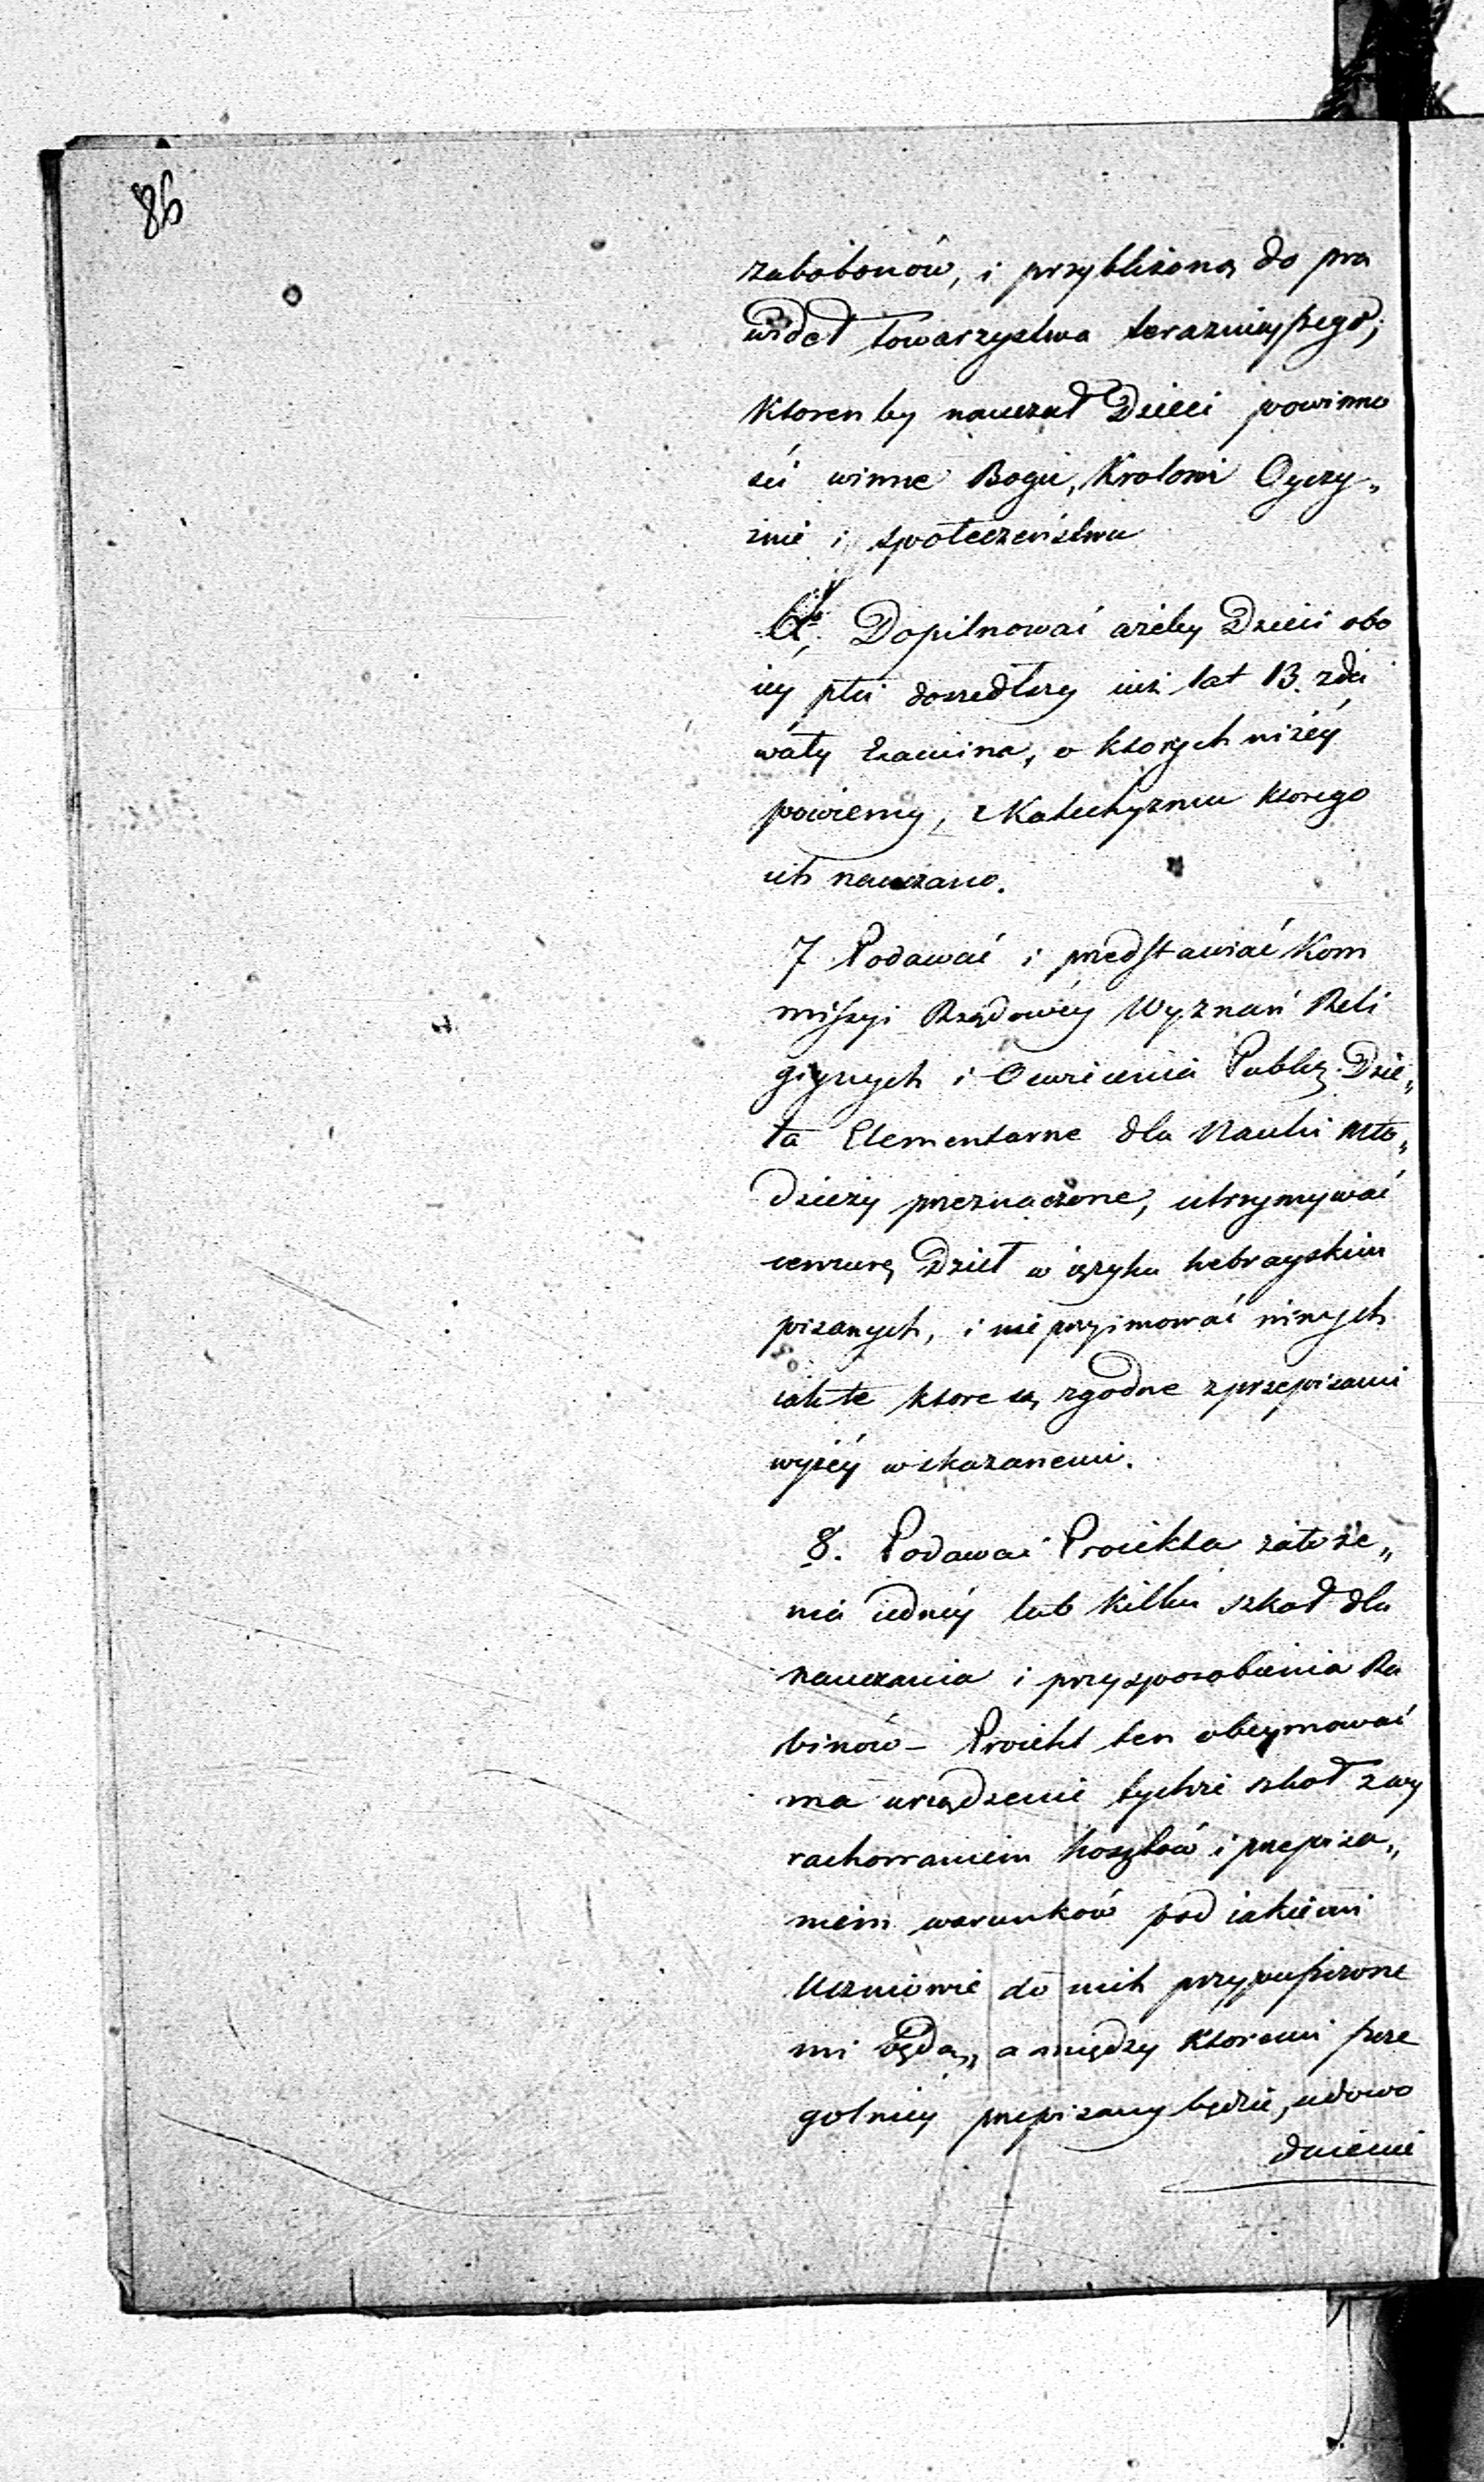 86
zabobonów, i przybliżoną do pra
wideł towarzystwa teraznieyszego;
ktoren by nauczał Dzieci powinno
ści winne Bogu, Krolowi Oyczy„
znie i społeczeństwu
6. Dopilnować ażeby Dzieci obo
iey płci doszedłszy iuż lat 13. zda
wały Examina, o ktorych niżéy
powiemy, z Katechyzmu ktorego
ich nauczano.
7 Podawać i przedstawiać Kom
missyi Rządowéy Wyznań Reli
giynych i Oswiecenia Publcz. Dzie„
ła Elementarne dla Nauki Mło„
dzieży przeznaczone, utrzymywać
cenzurę Dzieł w ięzyku hebrayskim
pisanych, i nie przyimować innych
iak te ktore są zgodne z przepisami
wyżéy wskazanemi.
8. Podawać Proiekta założe„
nia iednéy lub kilku szkoł dla
nauczania i przysposobienia Ra
binów – Proiekt ten obeymować
ma urządzenie tychże szkoł z wy
rachowaniem kosztów i przepisa„
niem warunków pod iakiemi
Uczniowie do nich przypuszczone
mi będą„ a między ktoremi szcze
golniéy przepisany będzie, udowo
dnienie